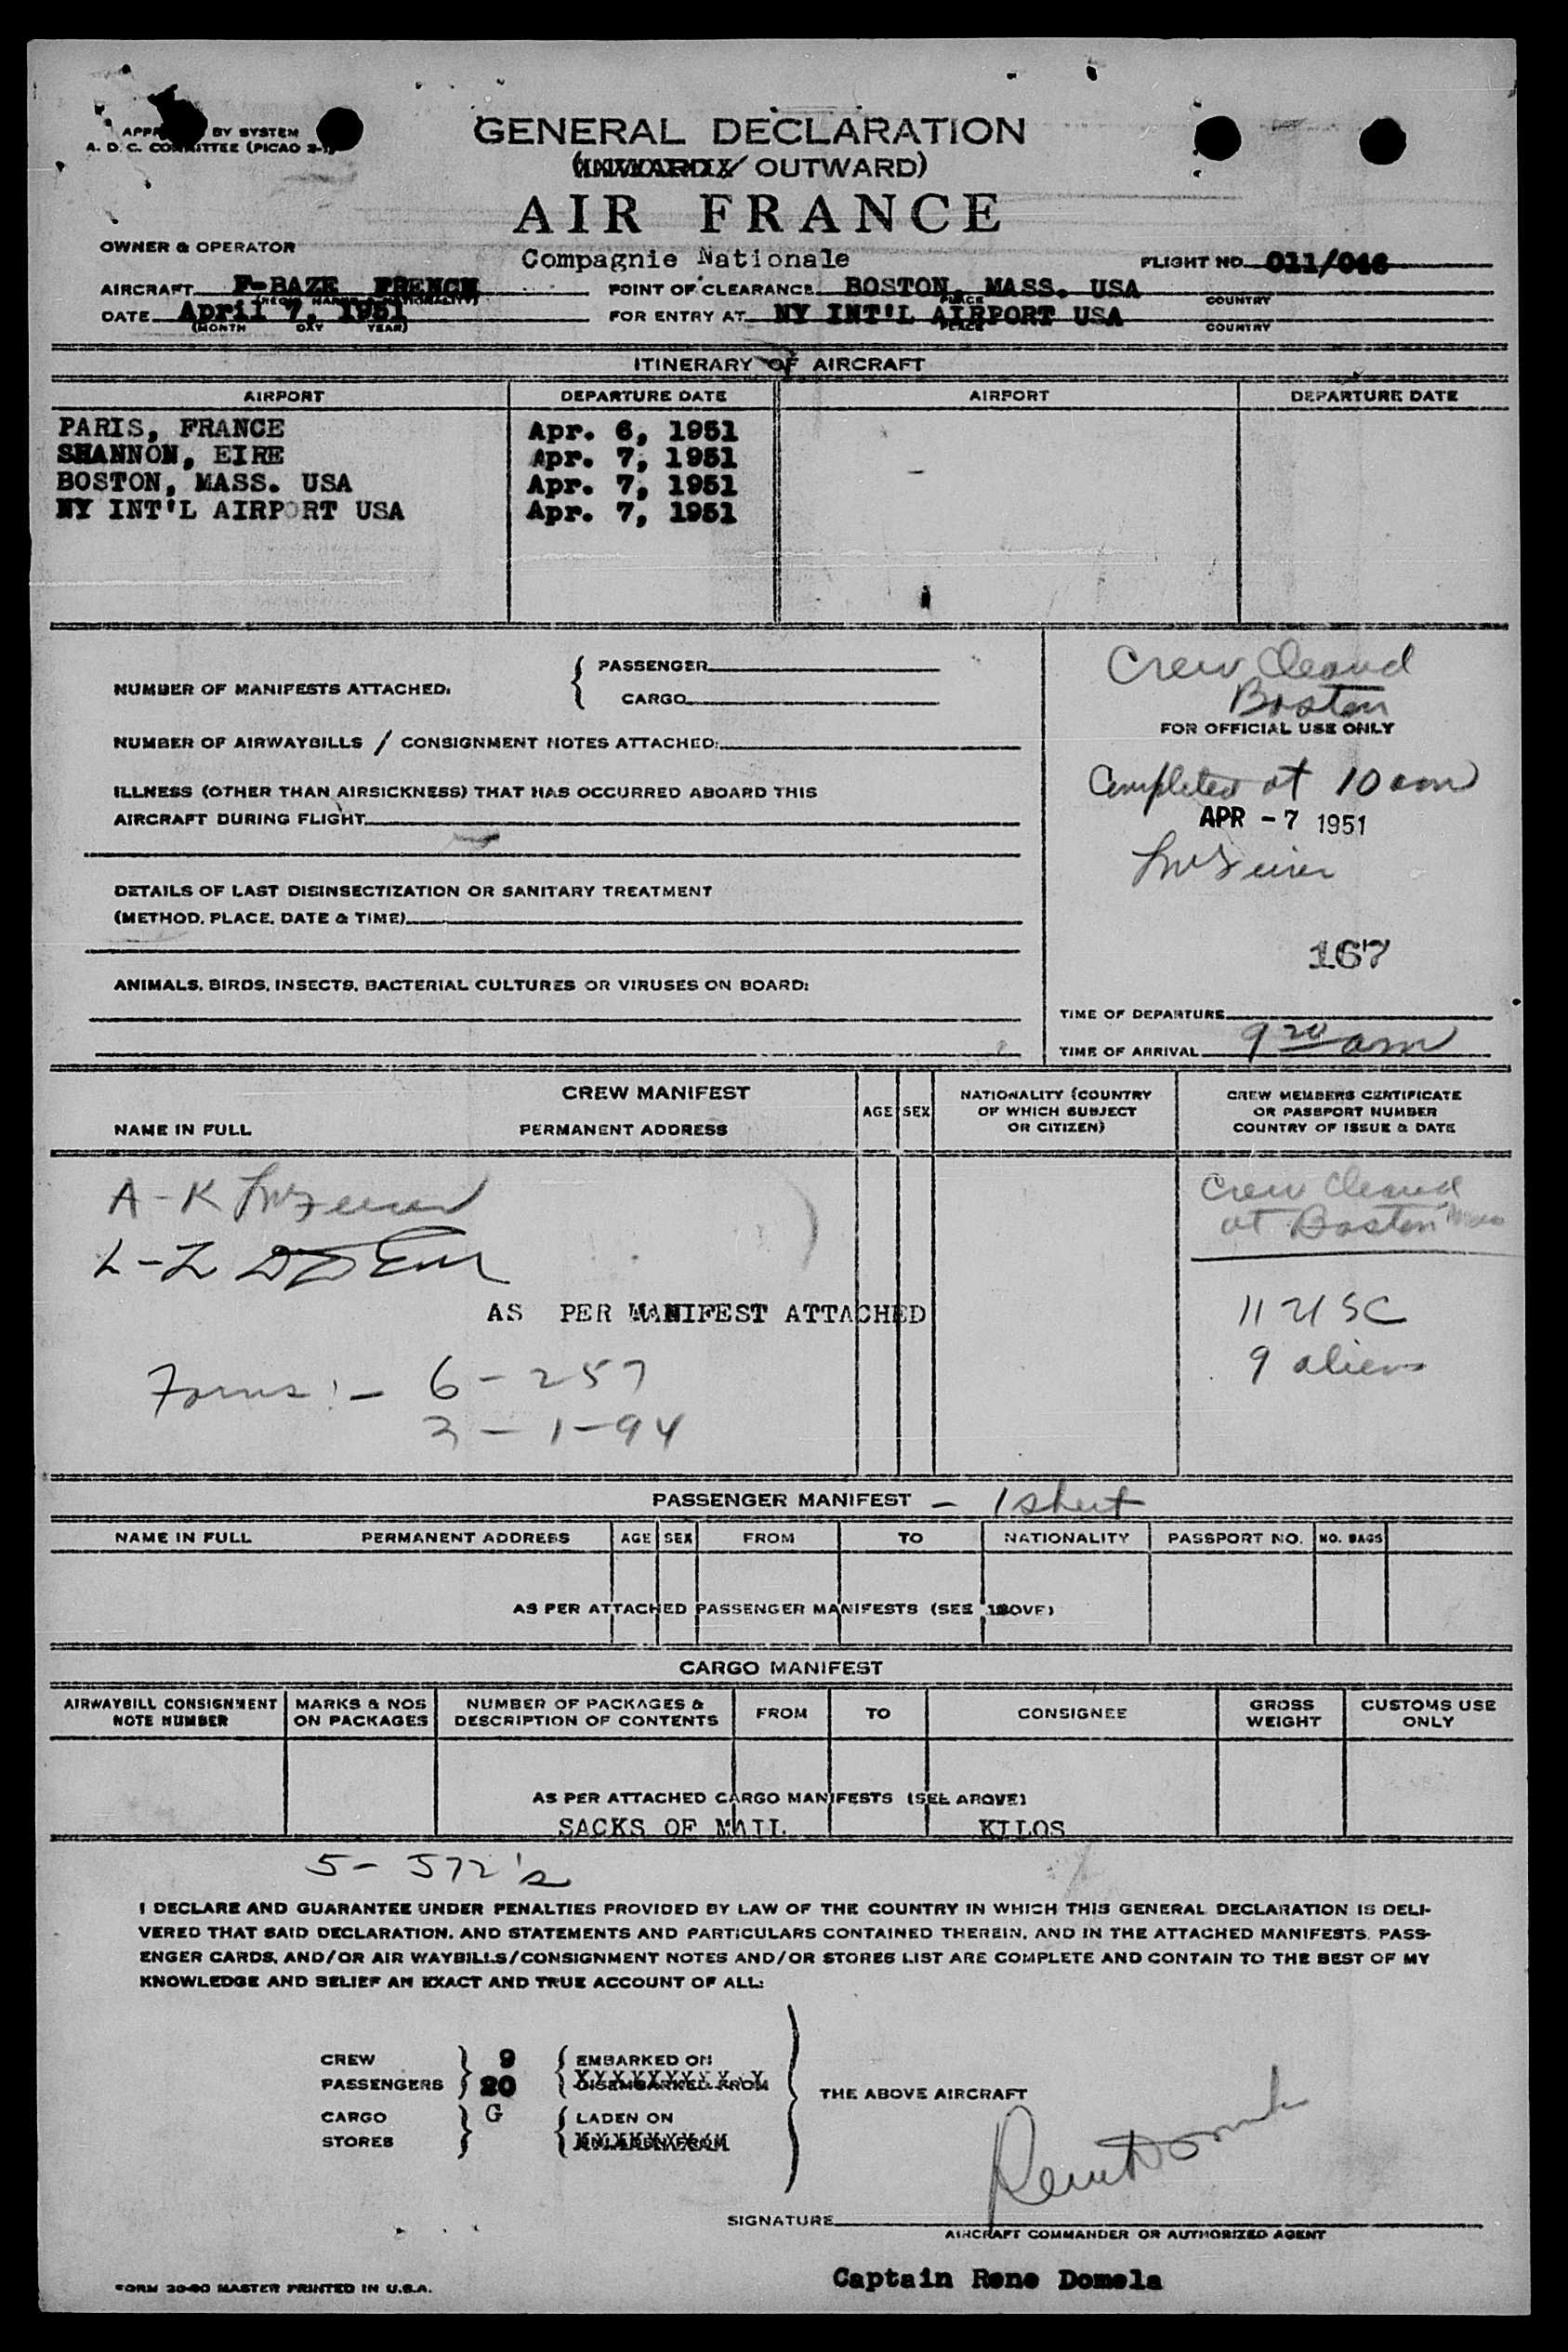 BY SYSTEM
A. D. C. COMMITTEE (PICAO
GENERAL DECLARATION
(INWARD / OUTWARD)
AIR FRANCE
OWNER & OPERATOR
Compagnie Nationale
FLIGHT NO. 011/046
AIRCRAFT F-BAZE FRENCH
POINT OF CLEARANCE BOSTON, MASS. USA
(REGIS. MARKS & NATIONALITY)
PLACE COUNTRY
DATE April 7, 1951
FOR ENTRY AT NY INT'L AIRPORT USA
(MONTH DAY YEAR)
PLACE COUNTRY
ITINERARY OF AIRCRAFT
AIRPORT DEPARTURE DATE AIRPORT DEPARTURE DATE
PARIS, FRANCE Apr. 6, 1951
SHANNON, EIRE Apr. 7, 1951
BOSTON, MASS. USA Apr. 7, 1951
NY INT'L AIRPORT USA Apr. 7, 1951
NUMBER OF MANIFESTS ATTACHED:
PASSENGER
CARGO
NUMBER OF AIRWAYBILLS / CONSIGNMENT NOTES ATTACHED:
ILLNESS (OTHER THAN AIRSICKNESS) THAT HAS OCCURRED ABOARD THIS
AIRCRAFT DURING FLIGHT
DETAILS OF LAST DISINSECTIZATION OR SANITARY TREATMENT
(METHOD, PLACE, DATE & TIME)
ANIMALS, BIRDS, INSECTS, BACTERIAL CULTURES OR VIRUSES ON BOARD:
Crew Cleared
Boston
FOR OFFICIAL USE ONLY
Completed at 10 am
APR - 7 1951
167
TIME OF DEPARTURE
TIME OF ARRIVAL 9 20 am
CREW MANIFEST
NAME IN FULL PERMANENT ADDRESS
AGE SEX
NATIONALITY (COUNTRY
OF WHICH SUBJECT
OR CITIZEN)
CREW MEMBERS CERTIFICATE
OR PASSPORT NUMBER
COUNTRY OF ISSUE & DATE
A-K
L-Z
Crew Cleared
at Boston Mass
AS PER MANIFEST ATTACHED
11 USC
9 aliens
Forms:- 6 - 257
3 - I-94
PASSENGER MANIFEST - 1 sheet
NAME IN FULL PERMANENT ADDRESS AGE SEX FROM TO NATIONALITY PASSPORT NO. NO. BAGS
AS PER ATTACHED PASSENGER MANIFESTS (SEE ABOVE)
CARGO MANIFEST
AIRWAYBILL CONSIGNMENT
NOTE NUMBER
MARKS & NOS
ON PACKAGES
NUMBER OF PACKAGES &
DESCRIPTION OF CONTENTS
FROM TO CONSIGNEE
GROSS
WEIGHT
CUSTOMS USE
ONLY
AS PER ATTACHED CARGO MANIFESTS (SEE ABOVE)
SACKS OF MAIL KILOS
5- 572's
I DECLARE AND GUARANTEE UNDER PENALTIES PROVIDED BY LAW OF THE COUNTRY IN WHICH THIS GENERAL DECLARATION IS DELI-
VERED THAT SAID DECLARATION, AND STATEMENTS AND PARTICULARS CONTAINED THEREIN, AND IN THE ATTACHED MANIFESTS, PASS-
ENGER CARDS, AND/OR AIR WAYBILLS/CONSIGNMENT NOTES AND/OR STORES LIST ARE COMPLETE AND CONTAIN TO THE BEST OF MY
KNOWLEDGE AND BELIEF AN EXACT AND TRUE ACCOUNT OF ALL:
CREW 9 EMBARKED ON
PASSENGERS 20 DISEMBARKED FROM
THE ABOVE AIRCRAFT
CARGO G LADEN ON
STORES UNLADEN FROM
Rene Domela
SIGNATURE
AIRCRAFT COMMANDER OR AUTHORIZED AGENT
Captain Rene Domela
FORM 20-90 MASTER PRINTED IN U.S.A.